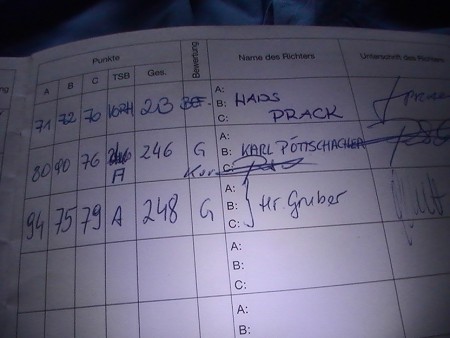 Punkte Bewertung Name des Richters Unterschrift des Richters
A B C TSB Ges.
A:
71 72 70 213 BEF. B: HANS
C: PRACK
A:
80 90 76 246 G B: KARL POTTSCHACHER
A C:
A:
94 75 79 A 248 G B: Hr. Gruber
C:
A:
B:
C:
A:
B: